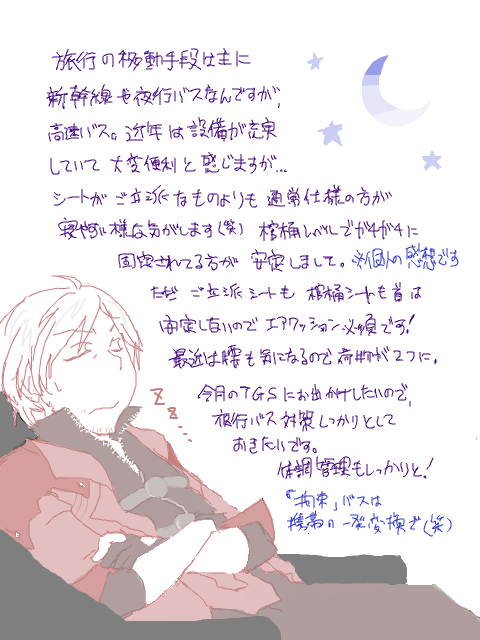 旅行の移動手段は主に
新幹線や夜行バスなんですが、
高速バス。近年は設備が充実
していて大変便利と感じますが…
シートがご立派なものよりも通常仕様の方が
寝やすい様な気がします(笑) 棺桶レベルでガチガチに
固定されてる方が安定しまして。※個人の感想です
ただご立派シートも棺桶シートも首は
安定しないのでエアクッション必須です!
最近は腰も気になるので荷物が2つに。
Z
Z
今月のTGSにお出かけしたいので、
夜行バス対策しっかりとして
おきたいです。
体調管理もしっかりと!
「拘束」バスは
携帯の一発変換で(笑)